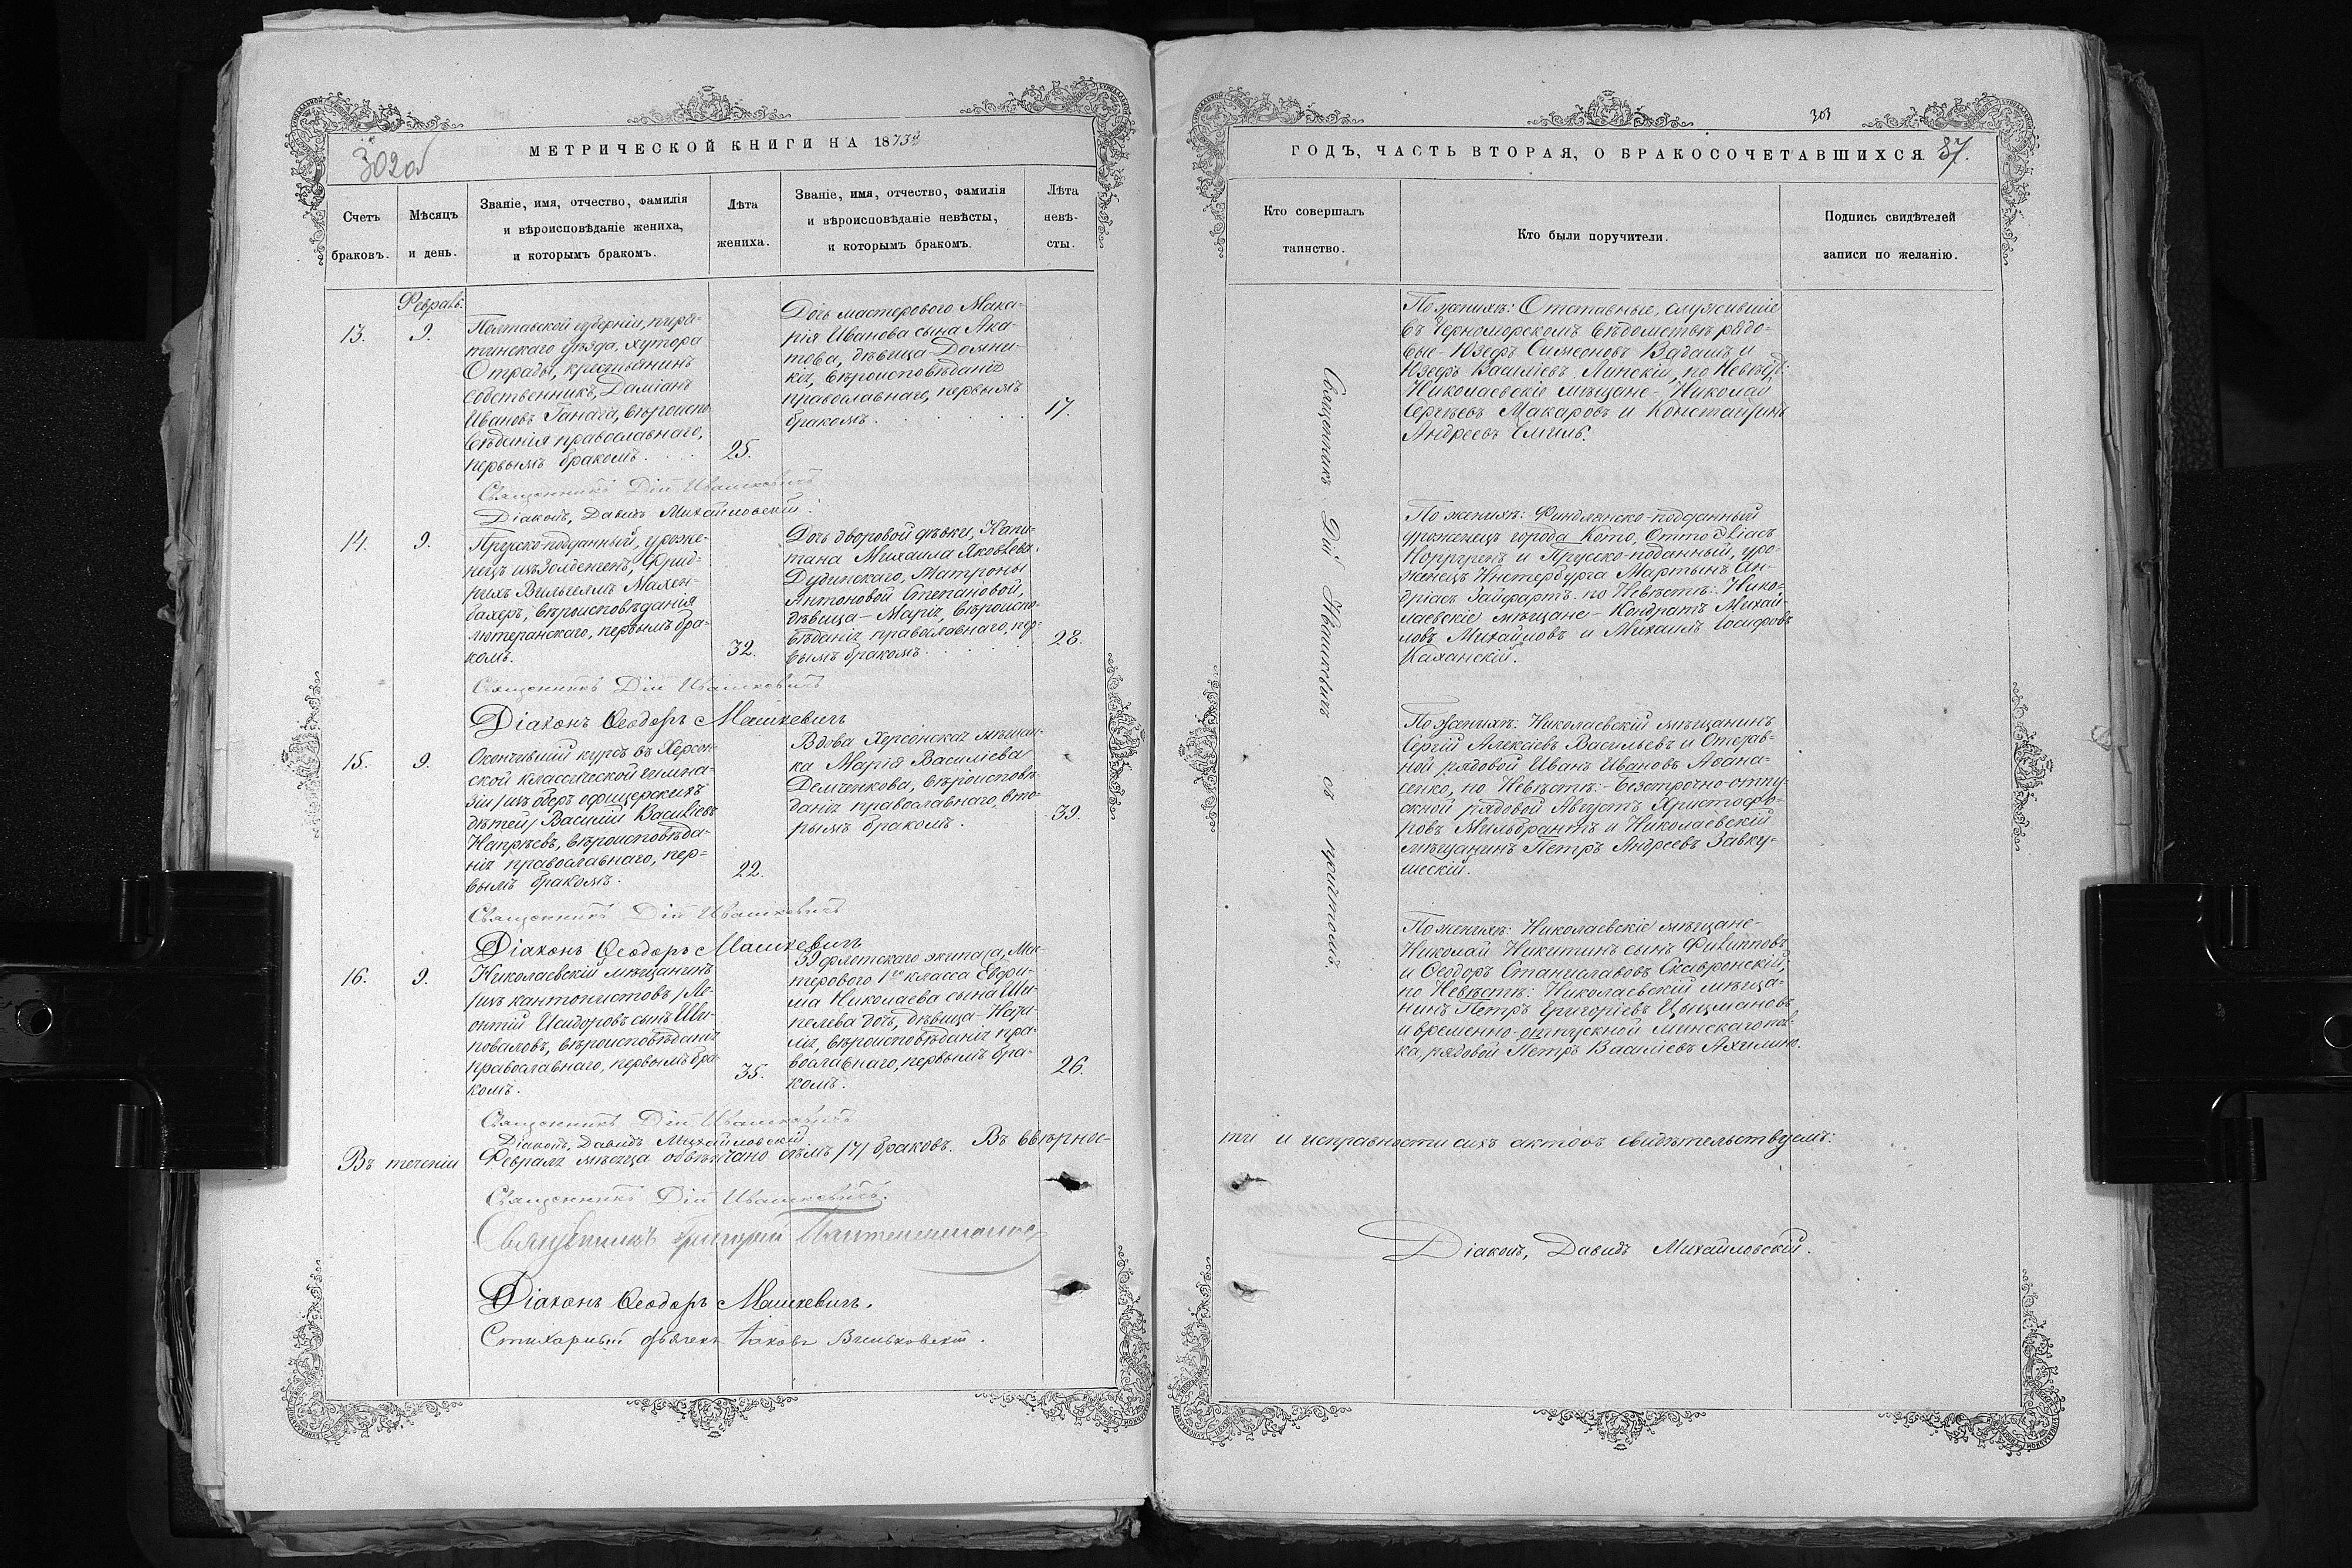 302об
МЕТРИЧЕСКОЙ КНИГИ НА 1873й
Счетъ
браковъ.
Мѣсяцъ
и день.
Званіе, имя, отчество, фамилія
и вѣроисповѣданіе жениха,
и которымъ бракомъ.
Лѣта
жениха.
Званіе, имя, отчество, фамилія
и вѣроисповѣданіе невѣсты,
и которымъ бракомъ.
Лѣта
невѣ-
сты.
Февраль.
13.
9.
Полтавской губерніи, пиря-
тинскаго уѣзда, хутора
Отрады, крестьянинъ
собственникъ, Даміанъ
Ивановъ Ганага, вѣроиспо-
вѣданія православнаго,
первымъ бракомъ
25.
Дочь мастероваго Мака-
рія Иванова сына Ака-
това, дѣвица Домни-
кія, вѣроисповѣданія
православнаго, первымъ
бракомъ.
17.
Священникъ Дій Ивашкевичъ
Діаконъ, Давидъ Михайловскій.
14.
9.
Прусско-подданный, уроже-
нецъ изъ Золденгенъ, Фрид-
рихъ Вильгелмъ Махен-
бахеръ, вѣроисповѣданія
лютеранскаго, первымъ бра-
комъ.
32.
Дочь дворовой дѣвки, Капи-
тана Михаила Яковлева
Дудинскаго, Матроны
Антоновой Степановой,
дѣвица - Марія, вѣроиспо-
вѣданія православнаго, пер-
вымъ бракомъ.
28.
Священникъ Дій Ивашкевичъ
Діаконъ Ѳеодоръ Машкевичъ
15.
9.
Окончившій курсъ въ Херсон-
ской классической гимна-
зіи /изъ оберъ офицерскихъ
дѣтей/ Василій Василіевъ
Напрѣевъ, вѣроисповѣда-
нія православнаго, пер-
вымъ бракомъ.
22.
Вдова Херсонская мѣщан-
ка Марія Василіева
Демченкова, вѣроисповѣ-
данія православнаго, вто-
рымъ бракомъ.
39.
Священникъ Дій Ивашкевичъ
Діаконъ Ѳеодоръ Машкевичъ
16.
9.
Николаевскій мѣщанинъ
/изъ кантонистовъ/ Ле-
онтій Исидоровъ сынъ Ши-
поваловъ, вѣроисповѣданія
православнаго, первымъ бра-
комъ.
35.
39 флотскаго экипажа, Ма-
терового 1го класса Евфи-
ма Николаева сына Ши-
пелева дочь, дѣвица
вѣроисповѣданія пра-
вославнаго, первымъ бра-
комъ.
26.
Священникъ Дій Ивашкевичъ
Діаконъ, Давидъ Михайловскій.
Въ теченіи Февраля мѣсяца обвѣнчано семь /7/ браковъ. Въ вѣрнос-
Священникъ Дій Ивашкевичъ.
Священникъ Григорій
Діаконъ Ѳеодоръ Машкевичъ.
Стихарный дьячекъ Іаковъ Вильковскій.
303
ГОДЪ, ЧАСТЬ ВТОРАЯ, О БРАКОСОЧЕТАВШИХСЯ 87.
Кто совершалъ
таинство.
Кто были поручители.
Подпись свидѣтелей
записи по желанію.
Священникъ Дій Ивашкевичъ съ причтомъ.
По женихѣ: Отставные, служившіе
въ Черноморскомъ вѣдомствѣ рядо-
вые - Юзефъ Симеоновъ Вадашъ и
Юзефъ Василіевъ Липскій, по Невѣстѣ:
Николаевскіе мѣщане - Николай
Сергѣевъ Макаровъ и Константинъ
Андреевъ
По женихѣ: Финдлянско-подданный
уроженецъ города Кото, Отто Эліасъ
Норргренъ и Прусско-поданный, уро-
женецъ Инстербурга Мартынъ Ан-
дріасъ Зайфартъ. по Невѣстѣ: Нико-
лаевскіе мѣщане - Кондратъ Михай-
ловъ Михайловъ и Михаилъ Іосифовъ
Каханскій.
По женихѣ: Николаевскій мѣщанинъ
Сергій Алексіевъ Васильевъ и Отстав-
ной рядовой Иванъ Ивановъ Аѳана-
сенко, по Невѣстѣ: - Безсрочно-отпу-
скной рядовой Августъ Христофо-
ровъ Мильбрантъ и Николаевскій
мѣщанинъ Петръ Андреевъ Завку-
шескій.
По женихѣ: Николаевскіе мѣщане-
Николай Никитинъ сынъ Филипповъ
и Ѳеодоръ Станиславовъ Скавронскій,
по Невѣстѣ: Николаевскій мѣща-
нинъ Петръ Григоріевъ Цыцмановъ
и временно-отпускной Минскаго пол-
ка, рядовой Петръ Василіевъ Ахилино.
ти и исправности сихъ актовъ свидѣтельствуемъ:
Діаконъ, Давидъ Михайловскій.